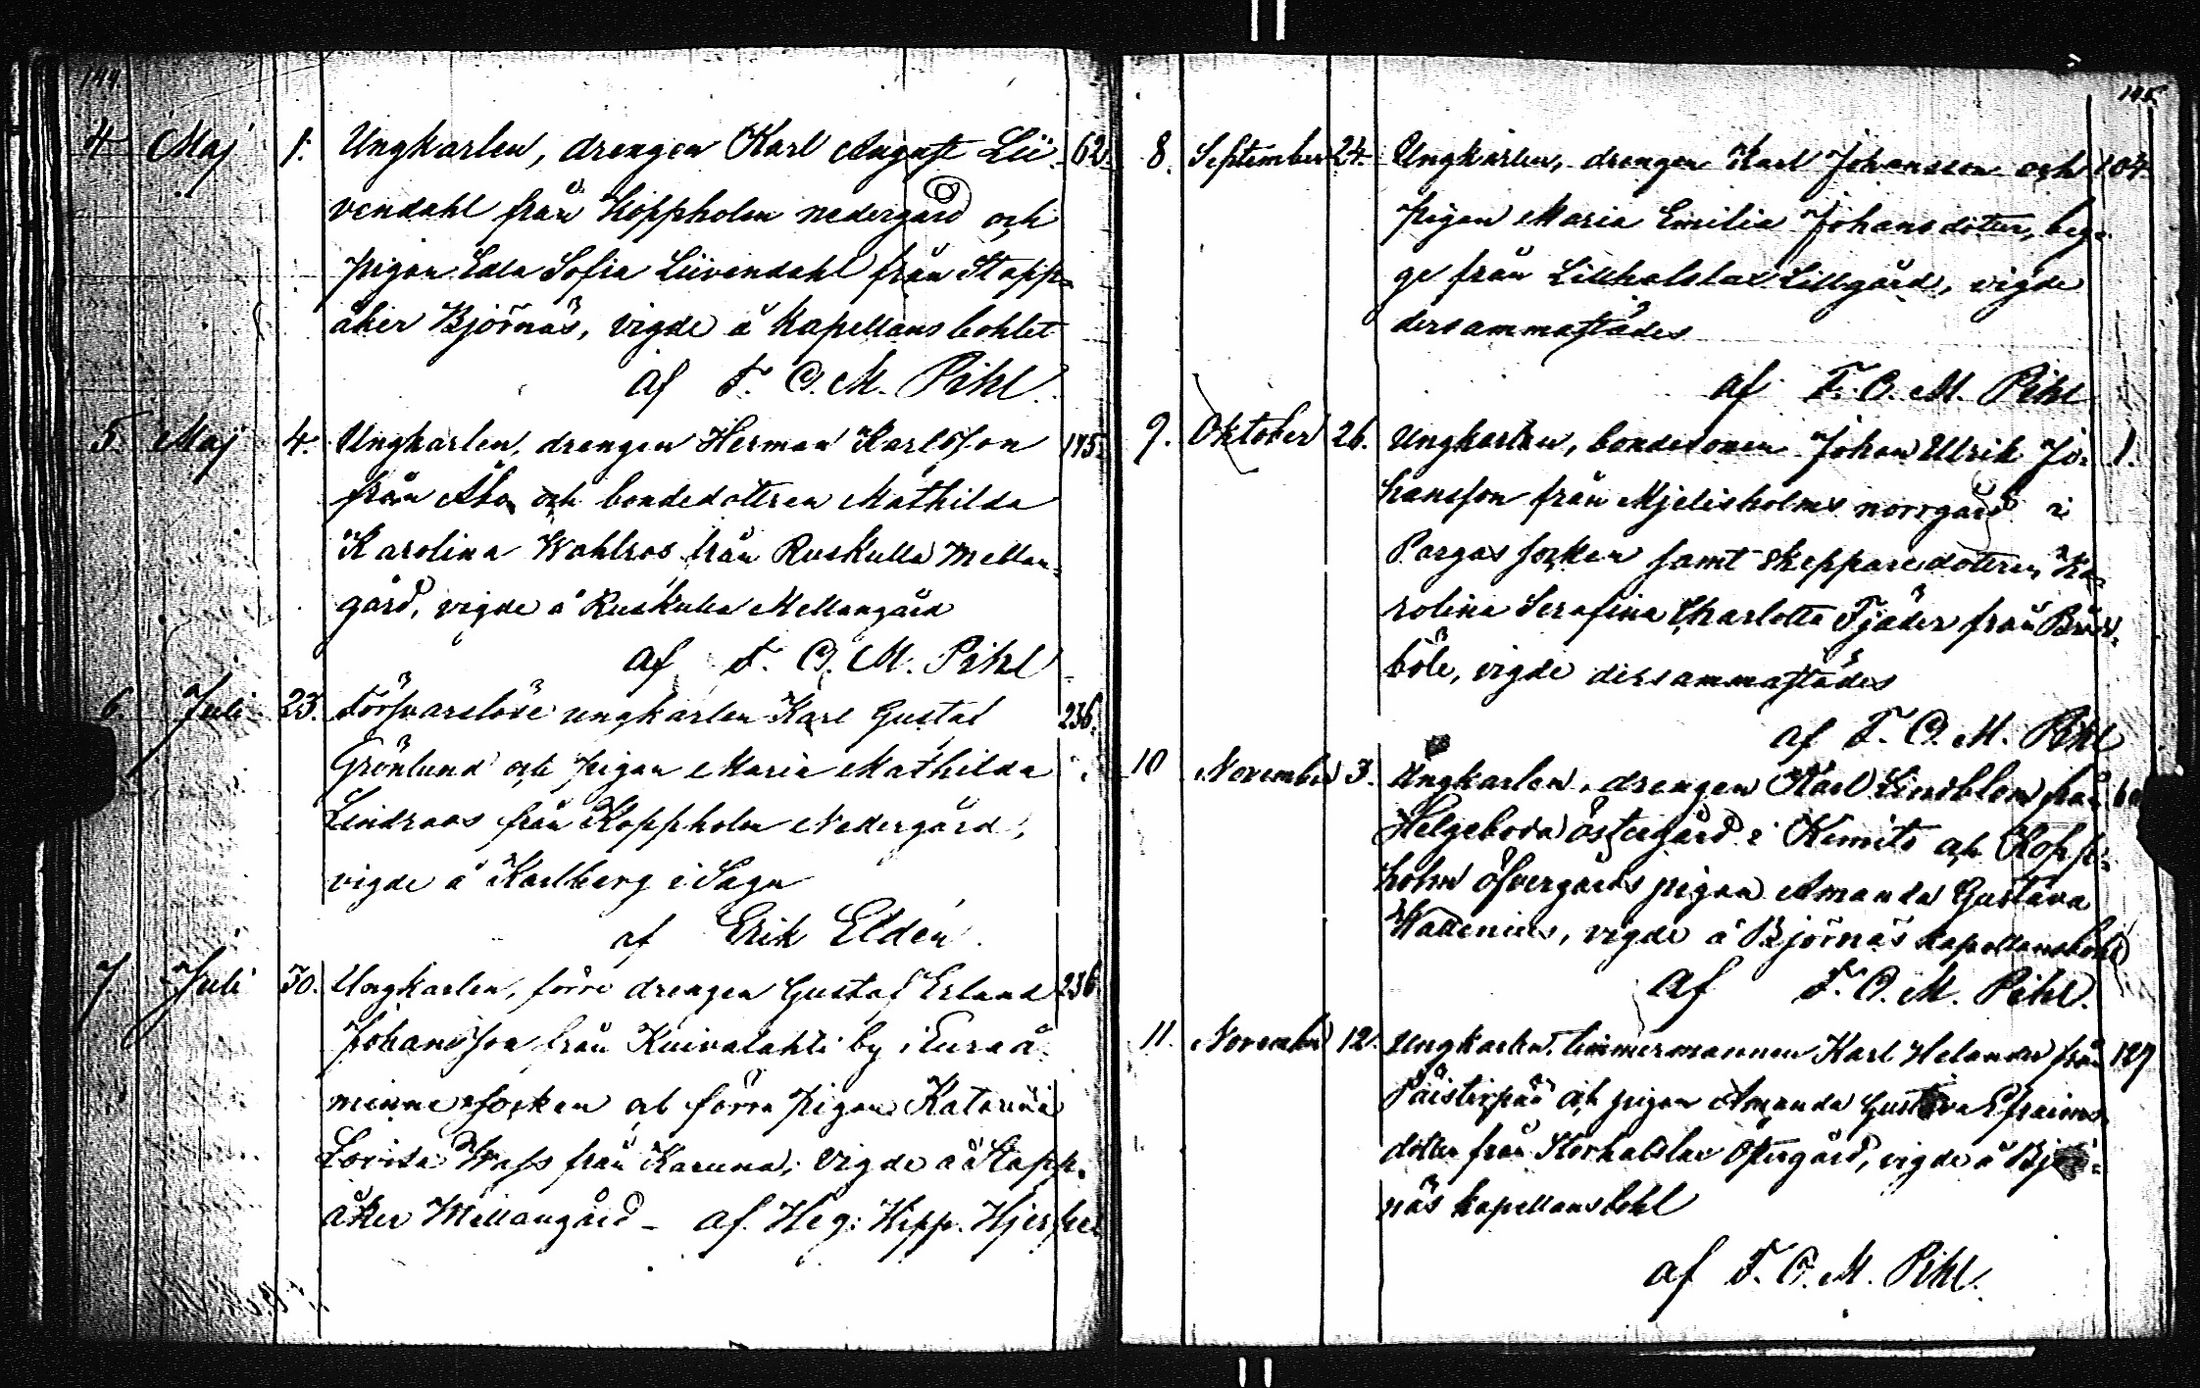 144.
4 Maj 1. Ungkarlen, drengen Karl August Lii- 62.
vendahl från Koppholm nedergård och
pigan Edla Sofia Liivendahl från Stapp-
åker Björnäs, vigde å Kapellans bohlet
af F. O. M. Pihl.
5. Maj 4. Ungkarlen, drengen Herman Karlsson 175.
från Åbo och bondedottren Mathilda
Karolina Wahlros från Ruskulla Mellan-
gård, vigde å Ruskulla Mellangård
af F. O. M. Pihl
6. Juli 23. Försvarslöse ungkarlen Karl Gustaf 236.
Grönlund och pigan Maria Mathilda
Lindroos från Koppholm Nedergård,
vigde å Karlberg i Sagu
af Erik Eldén.
7. Juli 30. Ungkarlen, förre drengen Gustaf Erland 236.
Johansson från Kuivalahti by i Eura å
minne socken och förra pigan Katarina
Lovisa Wass från Karuna, vigde å Stapp-
åker Mellangård - af Heg: Kipp. Hjerpe
145.
8. September 24. Ungkarlen, drengen Karl Johansson och 104.
pigan Maria Emilia Johansdotter, beg-
ge från Lillhalslax Lillgård, vigde
dersammastädes
af F. O. M. Pihl
9. Oktober 26. Ungkarlen, bondesonen Johan Ulrik Jo- 1.
hansson från Mjelisholms norrgård i
Pargas socken samt skepparedottren Ka-
rolina Serafina Charlotta Tjäder från
böle, vigde dersammastädes
af F. O. M. Pihl
10 November 3. Ungkarlen, drengen Karl Lindblom från
Helgeboda östergård i Kimito och Kopp-
holm öfvergårds pigan Amanda Gustava
Wallenius, vigde å Björnäs kapellansbohl
af F. O. M. Pihl.
11. November 12. Ungkarlen, timmermannen Karl Helander från 127
Päistirpää och pigan Amanda Gustava Efraims-
dotter från Storhalslax Östergård, vigde å Björ-
näs kapellansbohl
af F. O. M. Pihl.